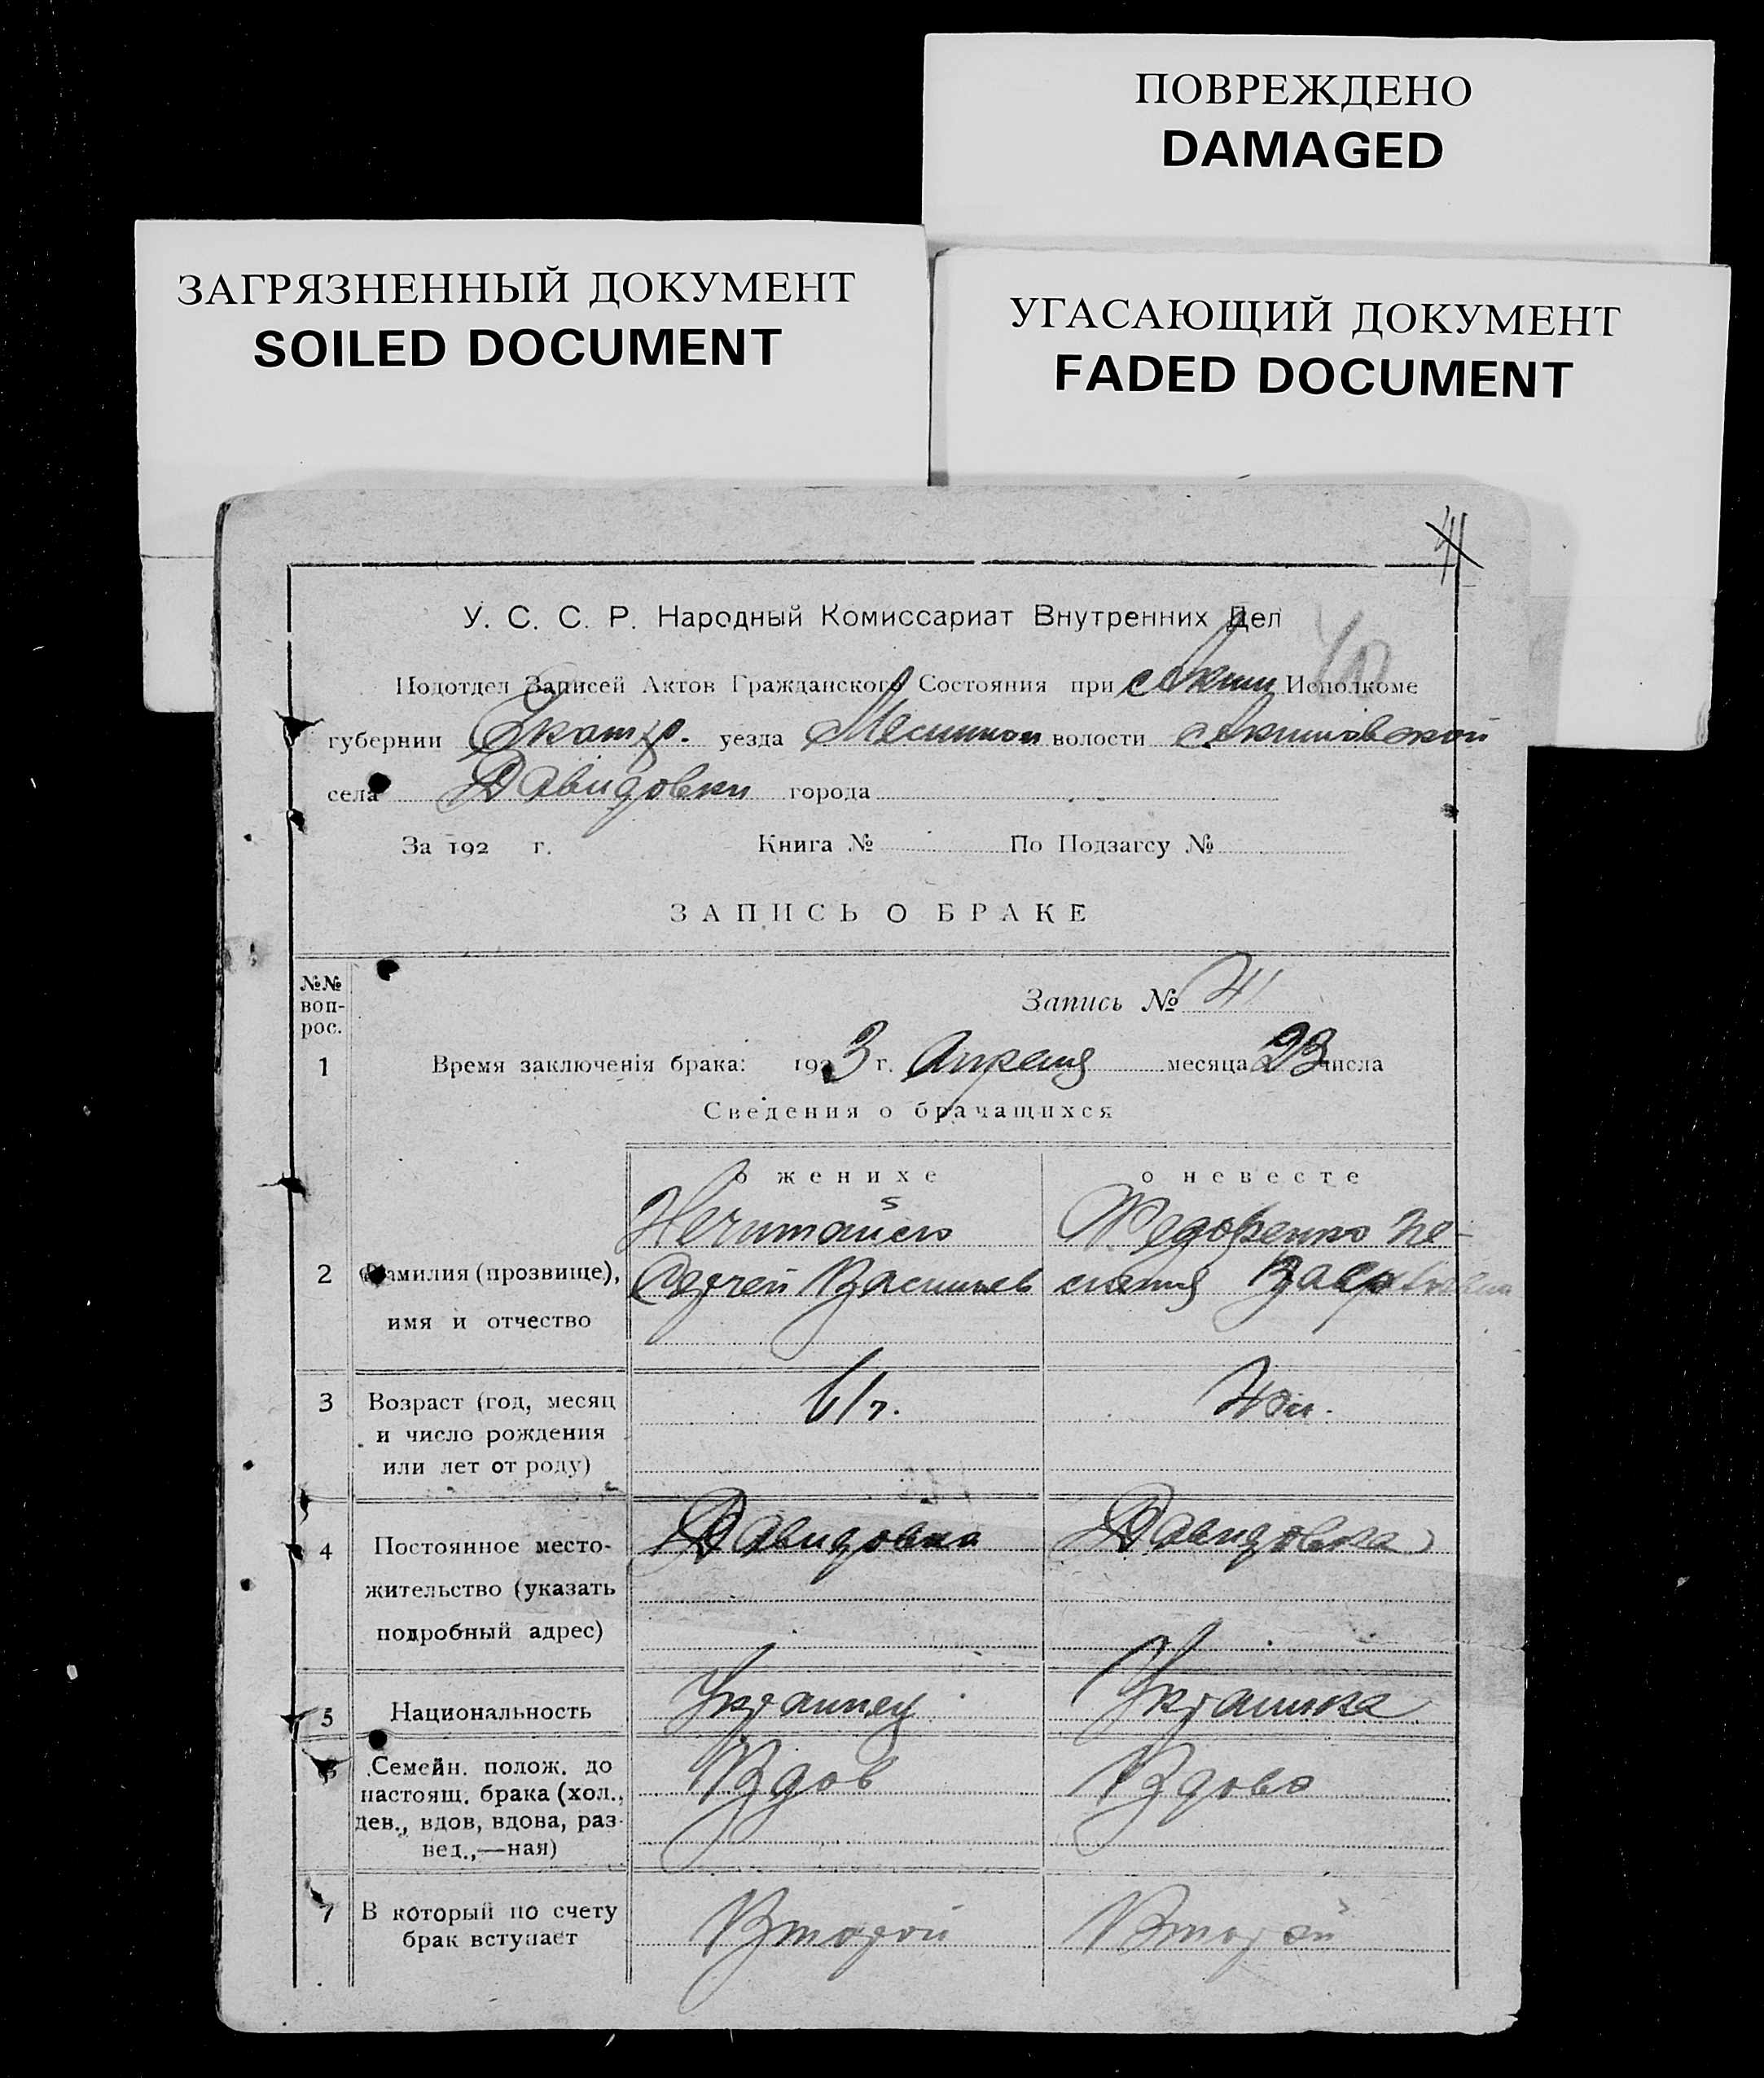 ПОВРЕЖДЕНО
DAMAGED
ЗАГРЯЗНЕННЫЙ ДОКУМЕНТ
SOILED DOCUMENT
УГАСАЮЩИЙ ДОКУМЕНТ
FADED DOCUMENT
41
У. С. С. Р. Народный Комиссариат Внутренних Дел
40
Подотдел Записей Актов Гражданского Состояния при Исполкоме
губернии уезда волости
села Давидовки города
За 192 г. Книга № По Подзагсу №
ЗАПИСЬ О БРАКЕ
№№ воп-рос.
Запись № 41
1 Время заключенія брака: 1923 г. Апреля месяца 23 числа
Сведения о брачащихся
о женихе о невесте
Нечитайло Федоренко Пе-
2 Фамилия (прозвище), Сергей Васильев
имя и отчество
3 Возраст (год, месяц 61 г.
и число рождения
или лет от роду)
Давидовка Давидовка
4 Постоянное место-
жительство (указать
подробный адрес)
5 Национальность Украинец Украинка
6 Семейн. полож. до Вдов Вдова
настоящ. брака (хол.,
дев., вдов, вдова, раз-
вед.,—ная)
7 В который по счету Второй Второй
брак вступает